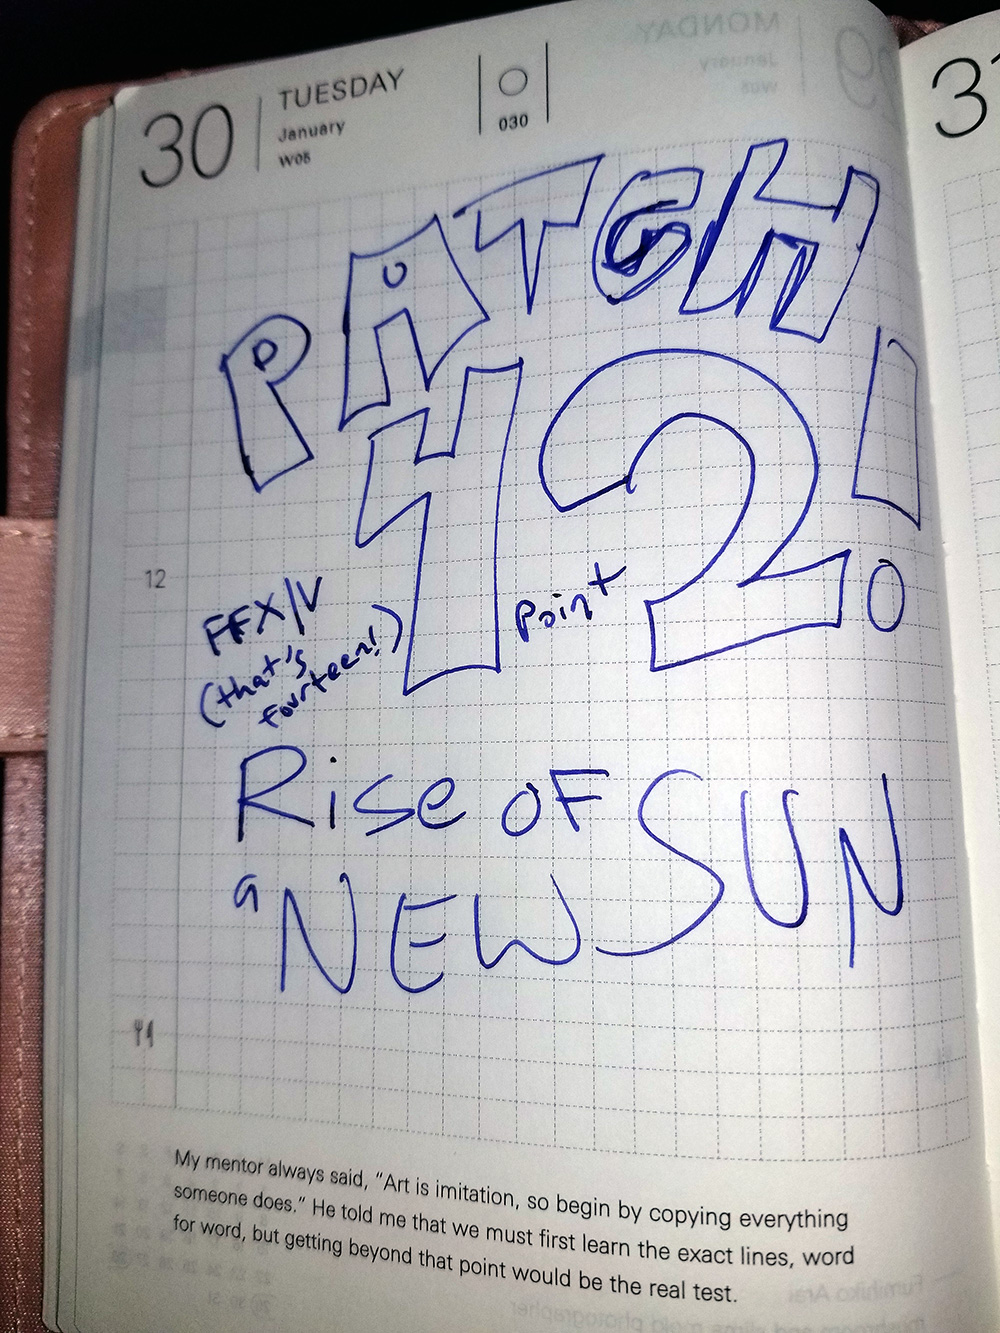 30 TUESDAY
January
W05
030
31
PATCH
42!
12
Point
FFXIV
(that's
fourteen!)
Rise of
a NEW SUN
My mentor always said, "Art is imitation, so begin by copying everything
someone does." He told me that we must first learn the exact lines, word
for word, but getting beyond that point would be the real test.